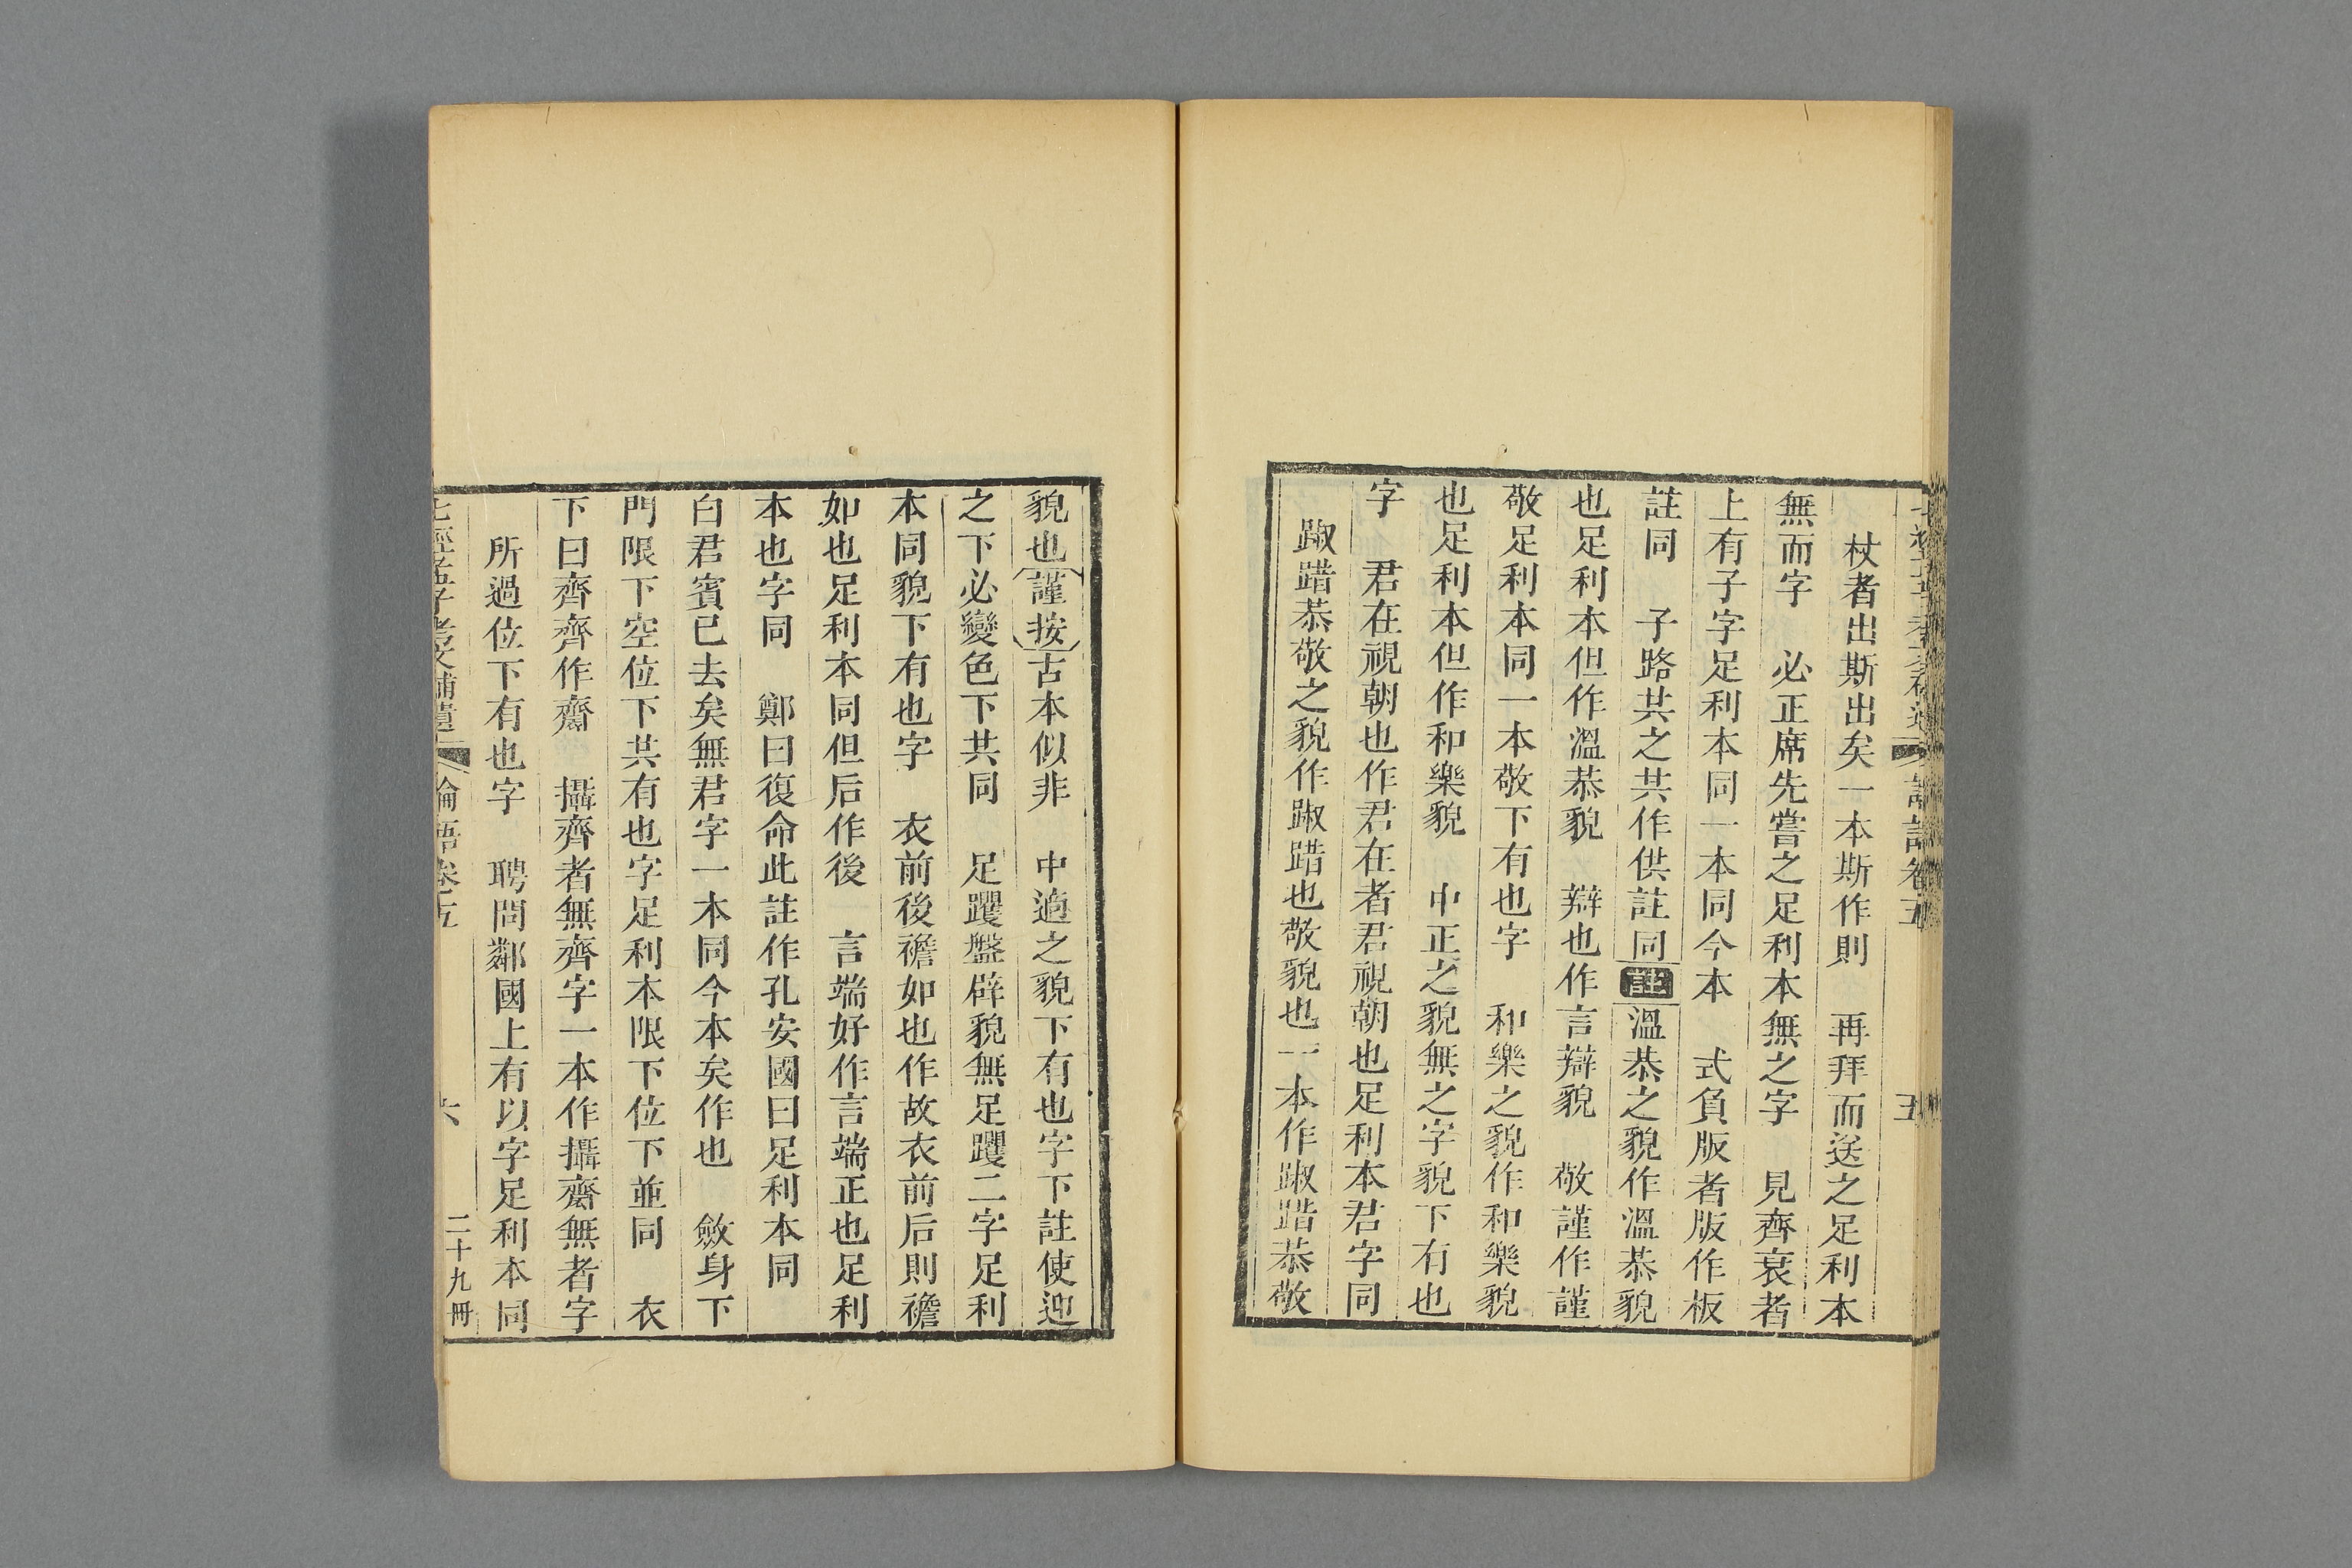 杖者出斯出矣一本斯作則　再拜而送之足利本
無而字　必正席先嘗之足利本無之字　見齊衰者
上有子字足利本同一本同今本　式負版者版作板
註同　子路共之共作供註同註溫恭之貌作溫恭貌
也足利本但作溫恭貌　辯也作言辯貌　敬謹作謹
敬足利本同一本敬下有也字　和樂之貌作和樂貌
也足利本但作和樂貌　中正之貌無之字貌下有也
字　君在視朝也作君在者君視朝也足利本君字同
踧踖恭敬之貌作踧踖也敬貌也一本作踧踖恭敬
貌也謹按古本似非　中適之貌下有也字下註使迎
之下必變色下共同　足躩盤辟貌無足躩二字足利
本同貌下有也字　衣前後襜如也作故衣前后則襜
如也足利本同但后作後　言端好作言端正也足利
本也字同　鄭曰復命此註作孔安國曰足利本同
白君賓已去矣無君字一本同今本矣作也　斂身下
門限下空位下共有也字足利本限下位下並同　衣
下曰齊齊作齋　攝齊者無齊字一本作攝齋無者字
所過位下有也字　聘問鄰國上有以字足利本同
論語卷五
六
二十九冊